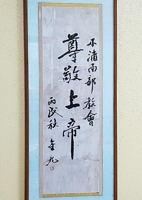 木浦南部 敎會
尊敬上帝
丙戌秋 金九